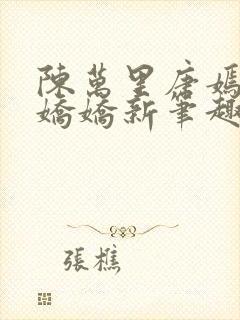 陳萬里唐嫣
嬌嬌新筆趣
張樵